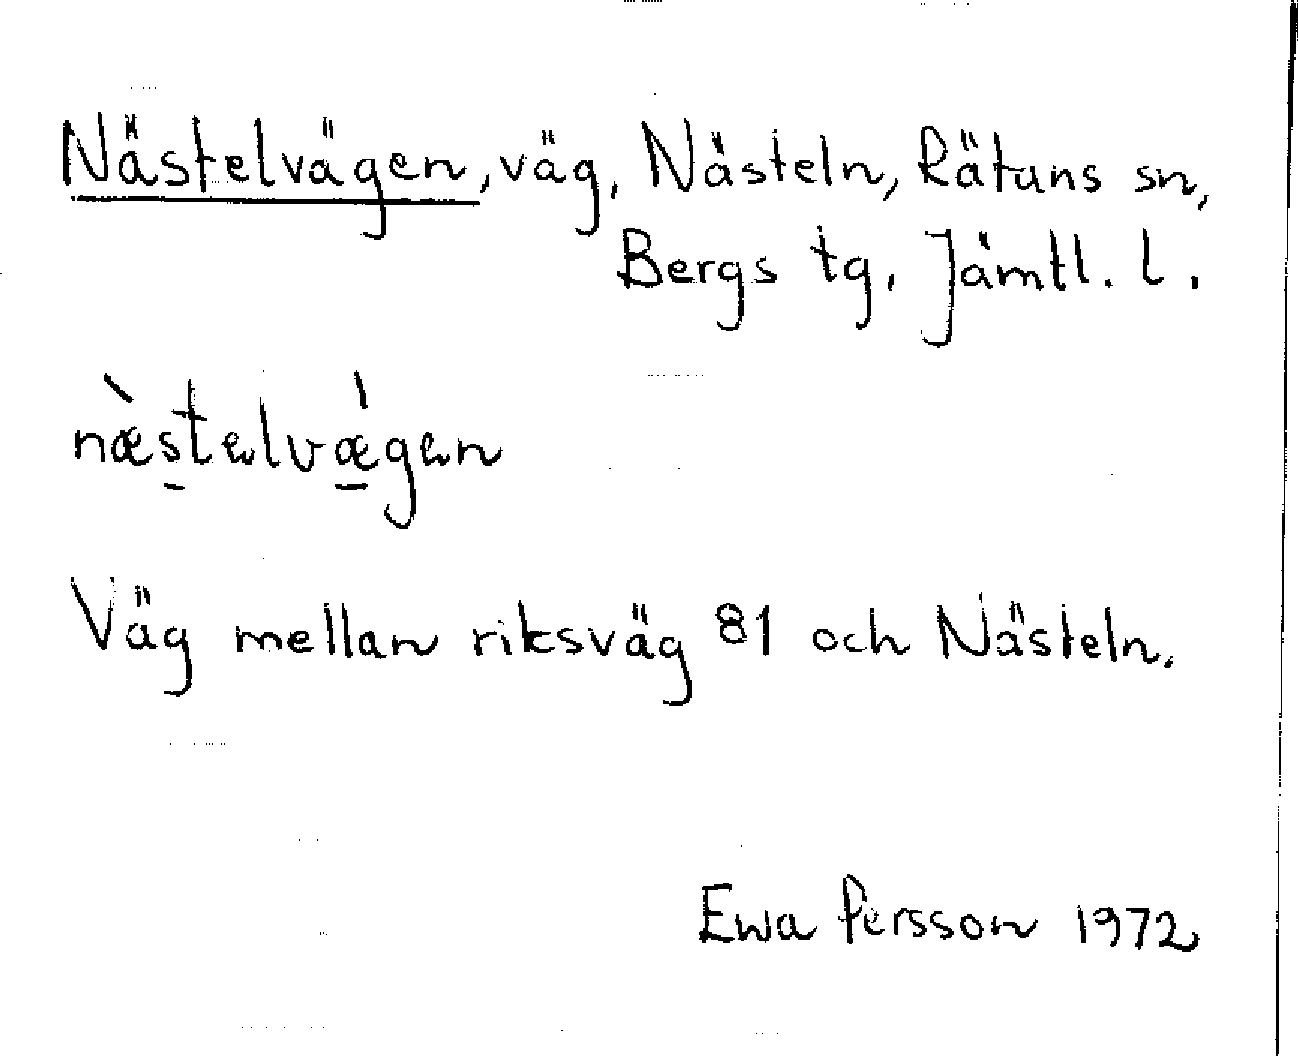 Nästelvägen, väg, Nästeln, Rätans sn,
Bergs tg, Jämtl. l.
næ̀stəlvǽgən
Väg mellan riksväg 81 och Nästeln.
Ewa Persson 1972